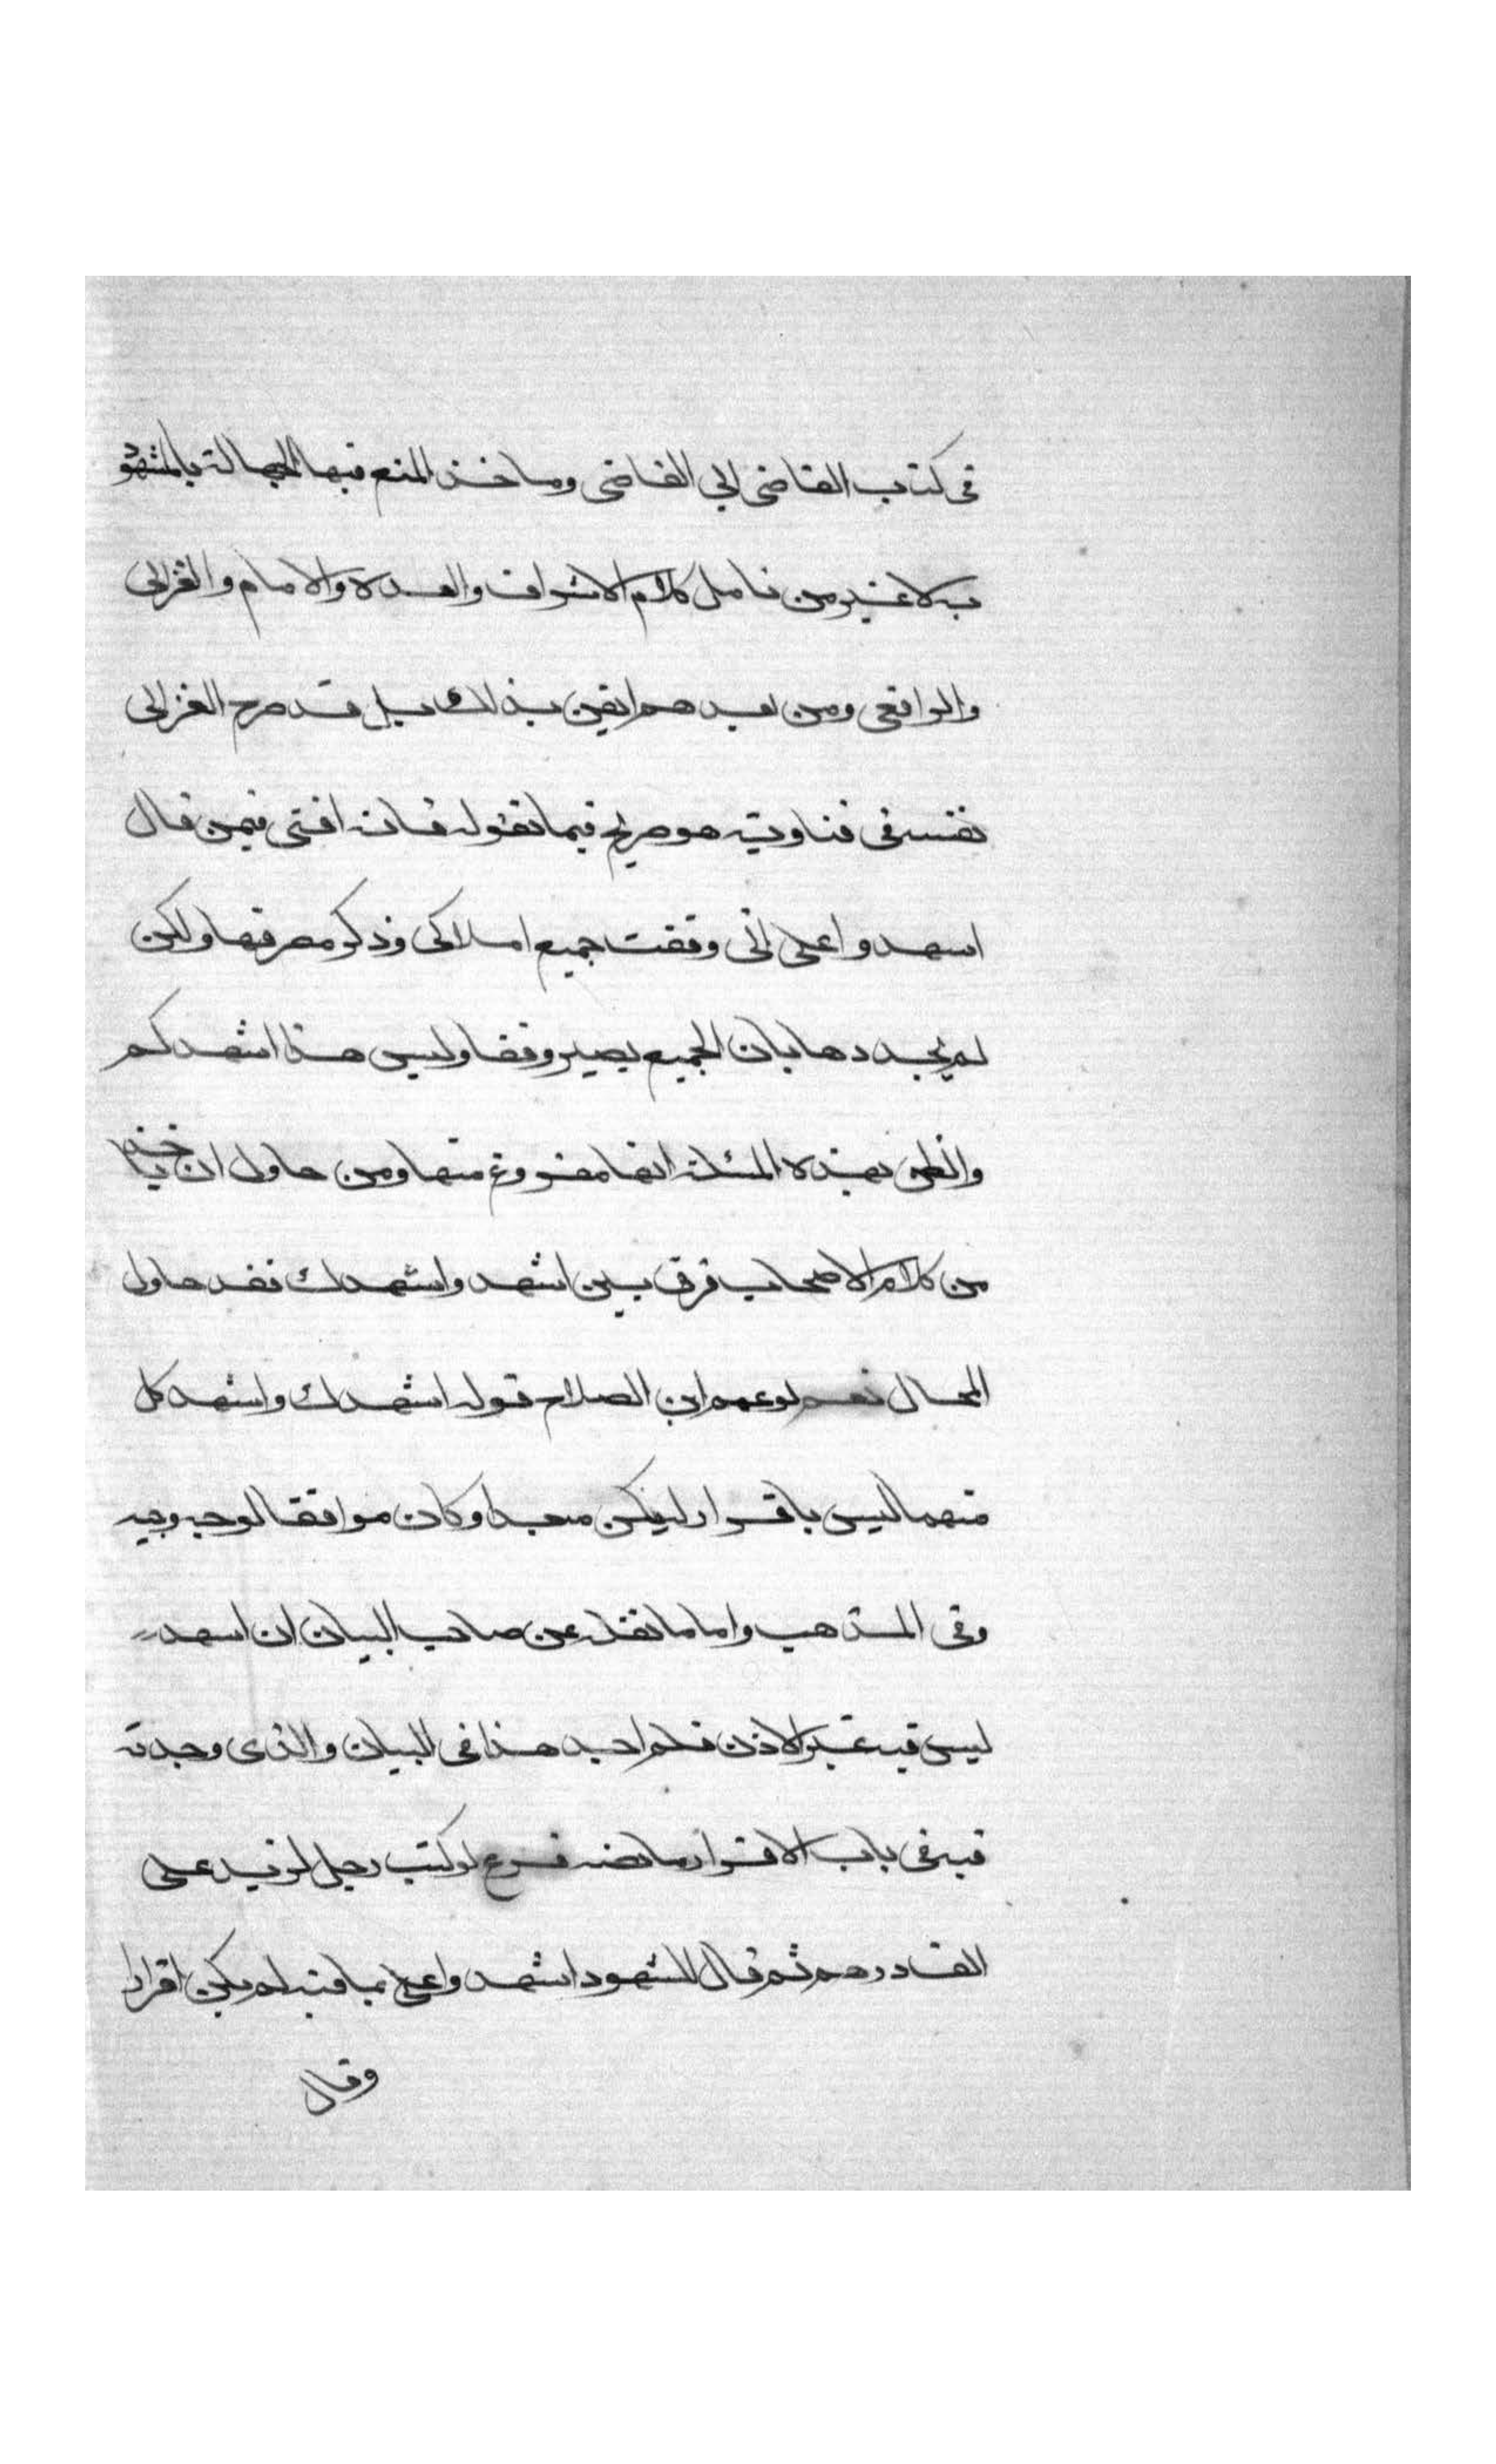 فى كتاب القاضى الى القاضى وماخذ المنع فيها الجهالة بالمشهود
به لا غير ومن تامل كلام الاشراف والعدة والامام والغزالى
والرافعى ومن بعدهم ايقن بذلك بل قد صرح الغزالى
نفسه فى فتاويه هو صريح فيما نقوله فانه افتى فيمن قال
اسهدوا على انى وقفت جميع املاكى وذكر مصرفها ولكن
لم يحددها بان الجميع يصير وقفا وليس هذا اشهدكم
والظن بهذه المسئلة انها مفروغ منها ومن حاول ان ياخذ
من كلام الاصحاب فرق بين اشهد واشهدك فقد حاول
المحال نعم لو عمم ابن الصلاح قوله اشهدك واشهد كل
منهما ليس باقرار لم يكن مبعدا وكان موافقا لوجه وجيه
وفى المذهب واما ما نقله عن صاحب البيان ان اسهد
ليس فيه غير الاذن فلم اجد هذا فى البيان والذى وجدته
فيه فى باب الاقرار ما نصه فرع لو كتب رجل لزيد على
الف درهم ثم قال للشهود اشهدوا على بما فيه لم يكن اقرارا
وقال